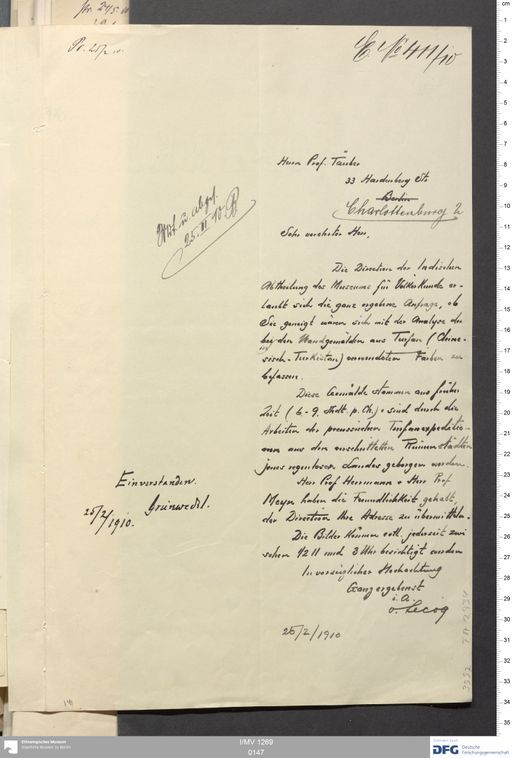 Pr. 25/2 10.
E No 411/10
Herrn Prof. Täuber
33 Hardenberg Str
Berlin
Charlottenburg 2
Abs. u. abges.
25. II 10.
Sehr verehrter Herr,
Die Direction der Indischen
Abtheilung des Museums für Völkerkunde er-
laubt sich die ganz ergebene Anfrage, ob
Sie geneigt wären sich mit der Analyse der
bei den Wandgemälden aus Turfan (Chine-
sisch-Turkistan) verwendeten Farben zu
befassen.
Diese Gemälde stammen aus früher
Zeit (6.-9. Jhdt. p. Ch.) & sind durch die
Arbeiten der preussischen Turfanexpeditio-
nen aus den verschütteten Ruinenstädten
jenes regenlosen Landes geborgen worden.
Herr Prof Herrmann & Herr Prof
Meyer haben die Freundlichkeit gehabt,
der Direction Ihre Adresse zu übermitteln.
Die Bilder können evtl. jederzeit zwi
schen 1/2 11 und 3 Uhr besichtigt werden
In vorzüglicher Hochachtung
Ganz ergebenst
i. A.
v. Lecoq
25/2/1910
Einverstanden.
Grünwedel.
25/2/1910.
I/MV 1269
0147
Ethnologisches Museum
Staatliche Museen zu Berlin
DFG Deutsche
Forschungsgemeinschaft